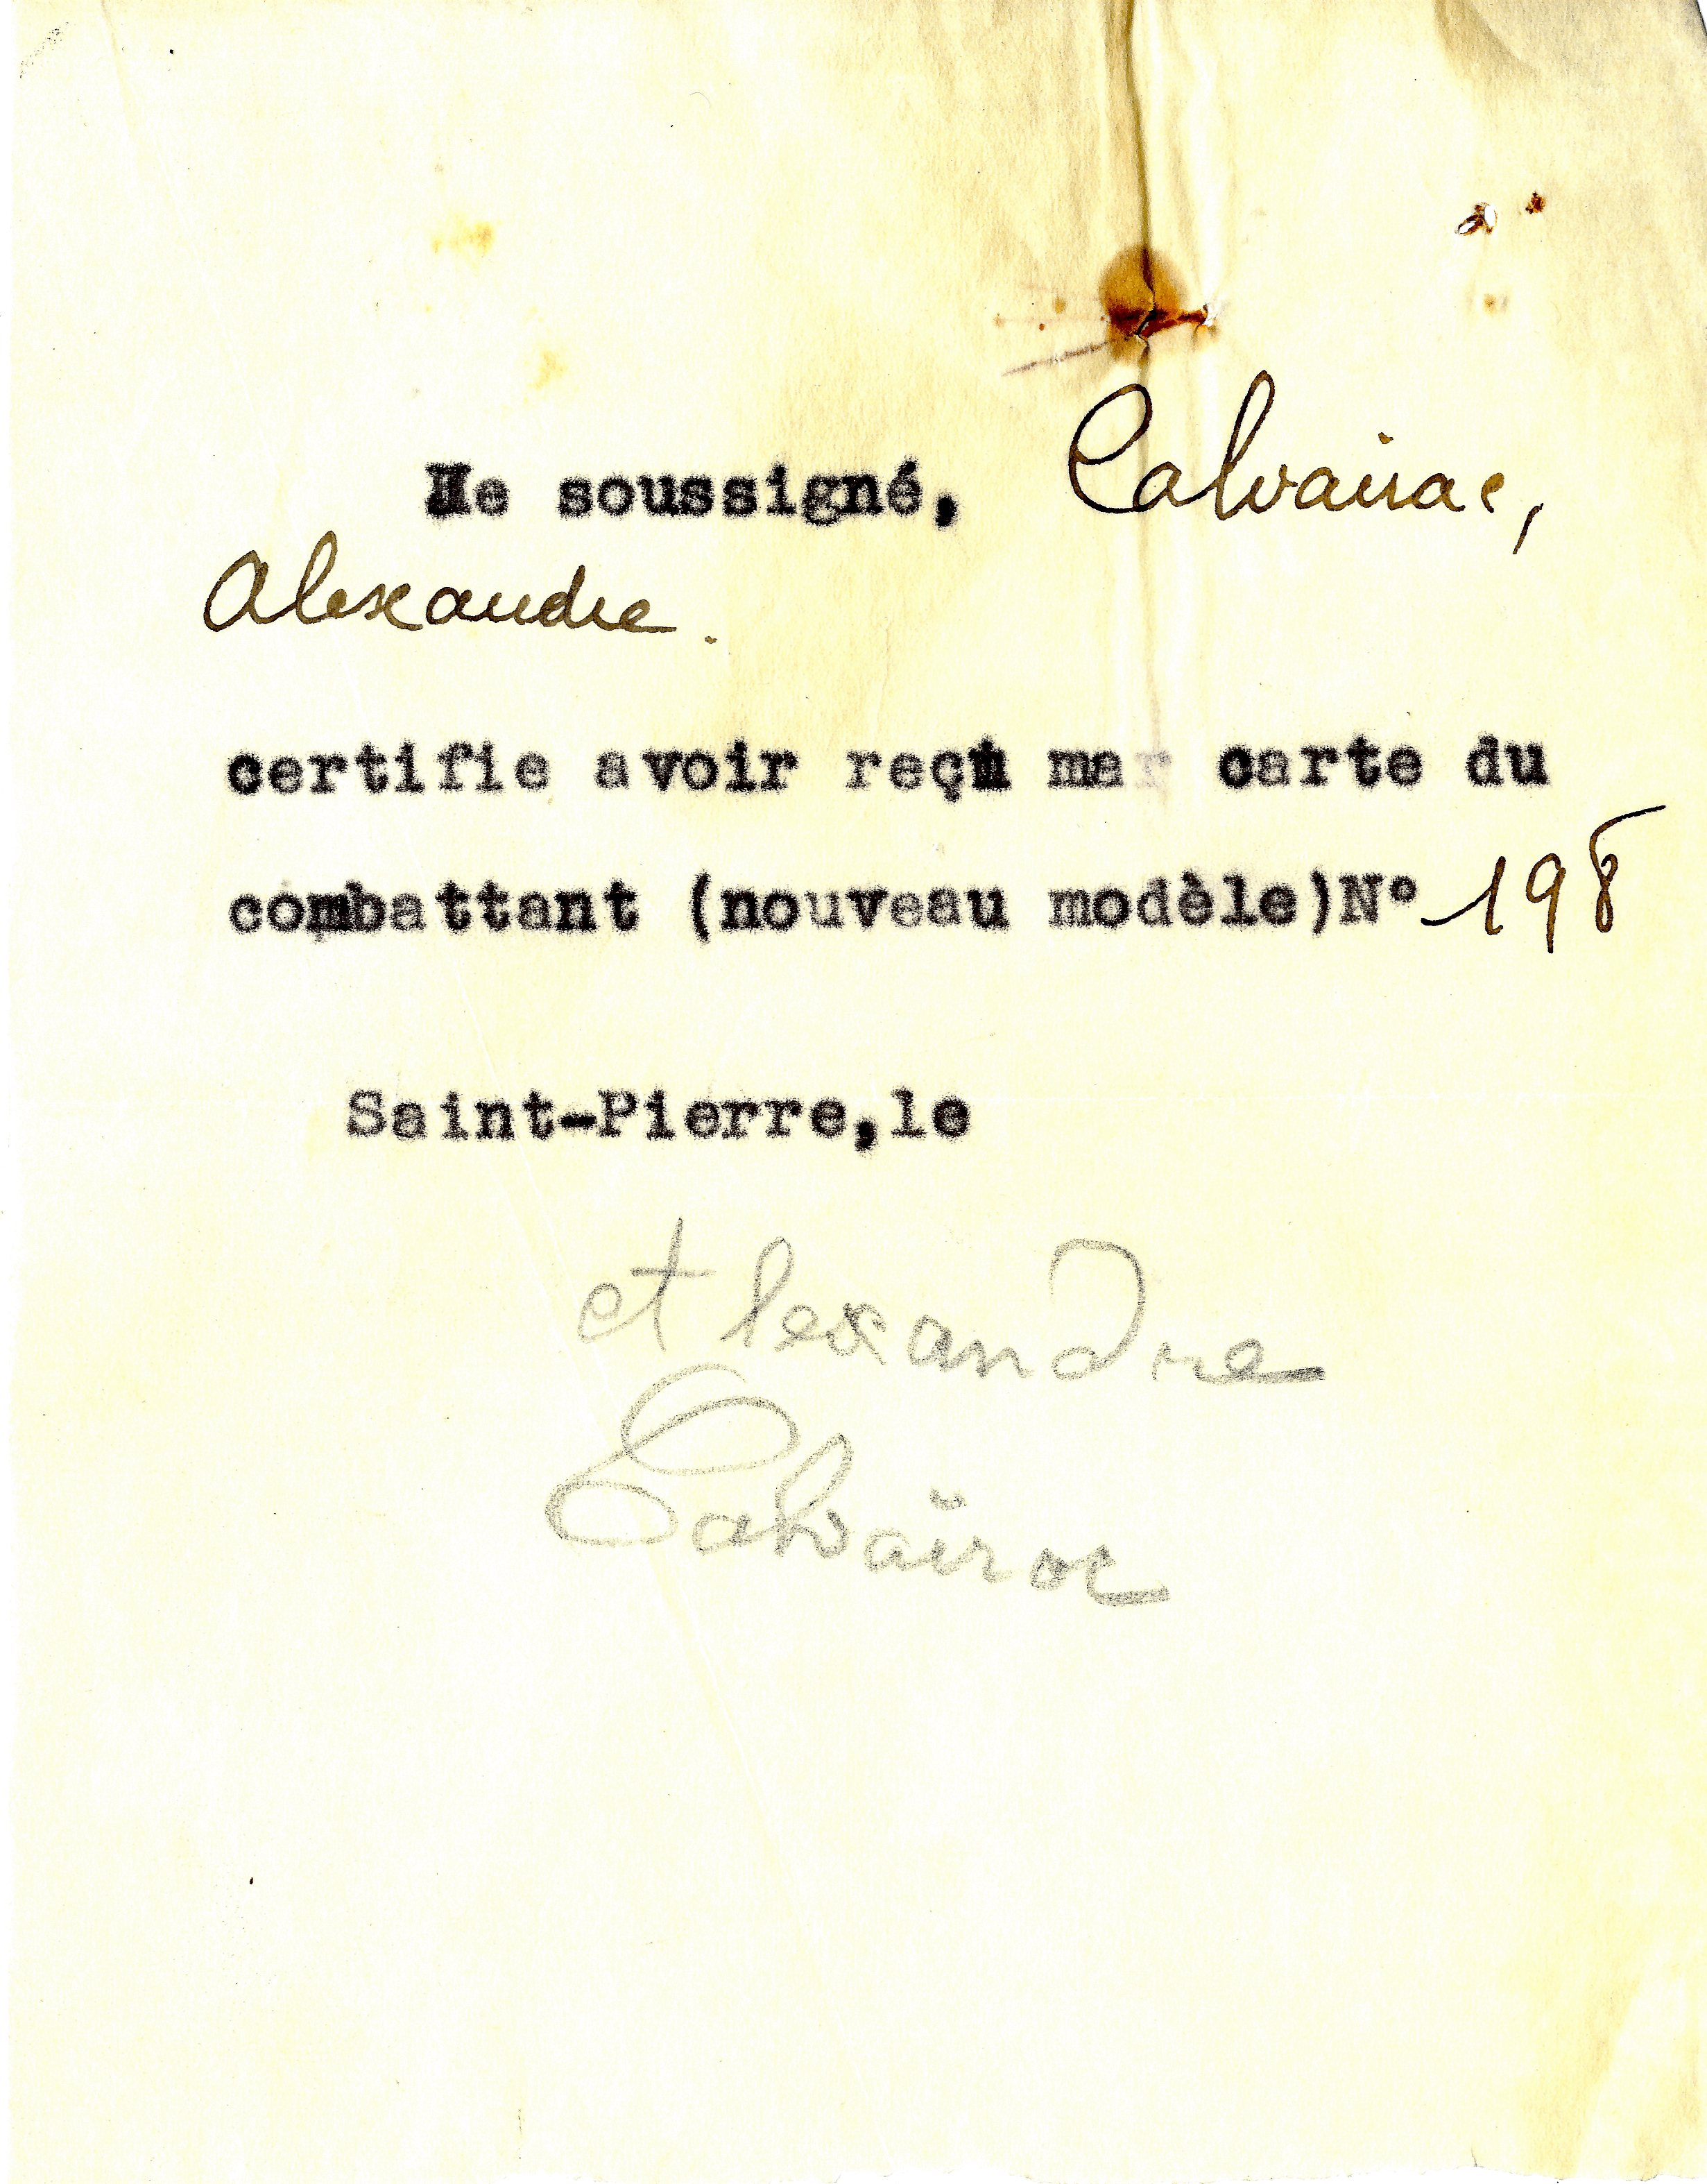 Je soussigné, Calvairac,
Alexandre.
certifie avoir reçu ma carte du
combattant (nouveau modèle)N° 198
Saint-Pierre,le
Alexandre
Calvaïrac